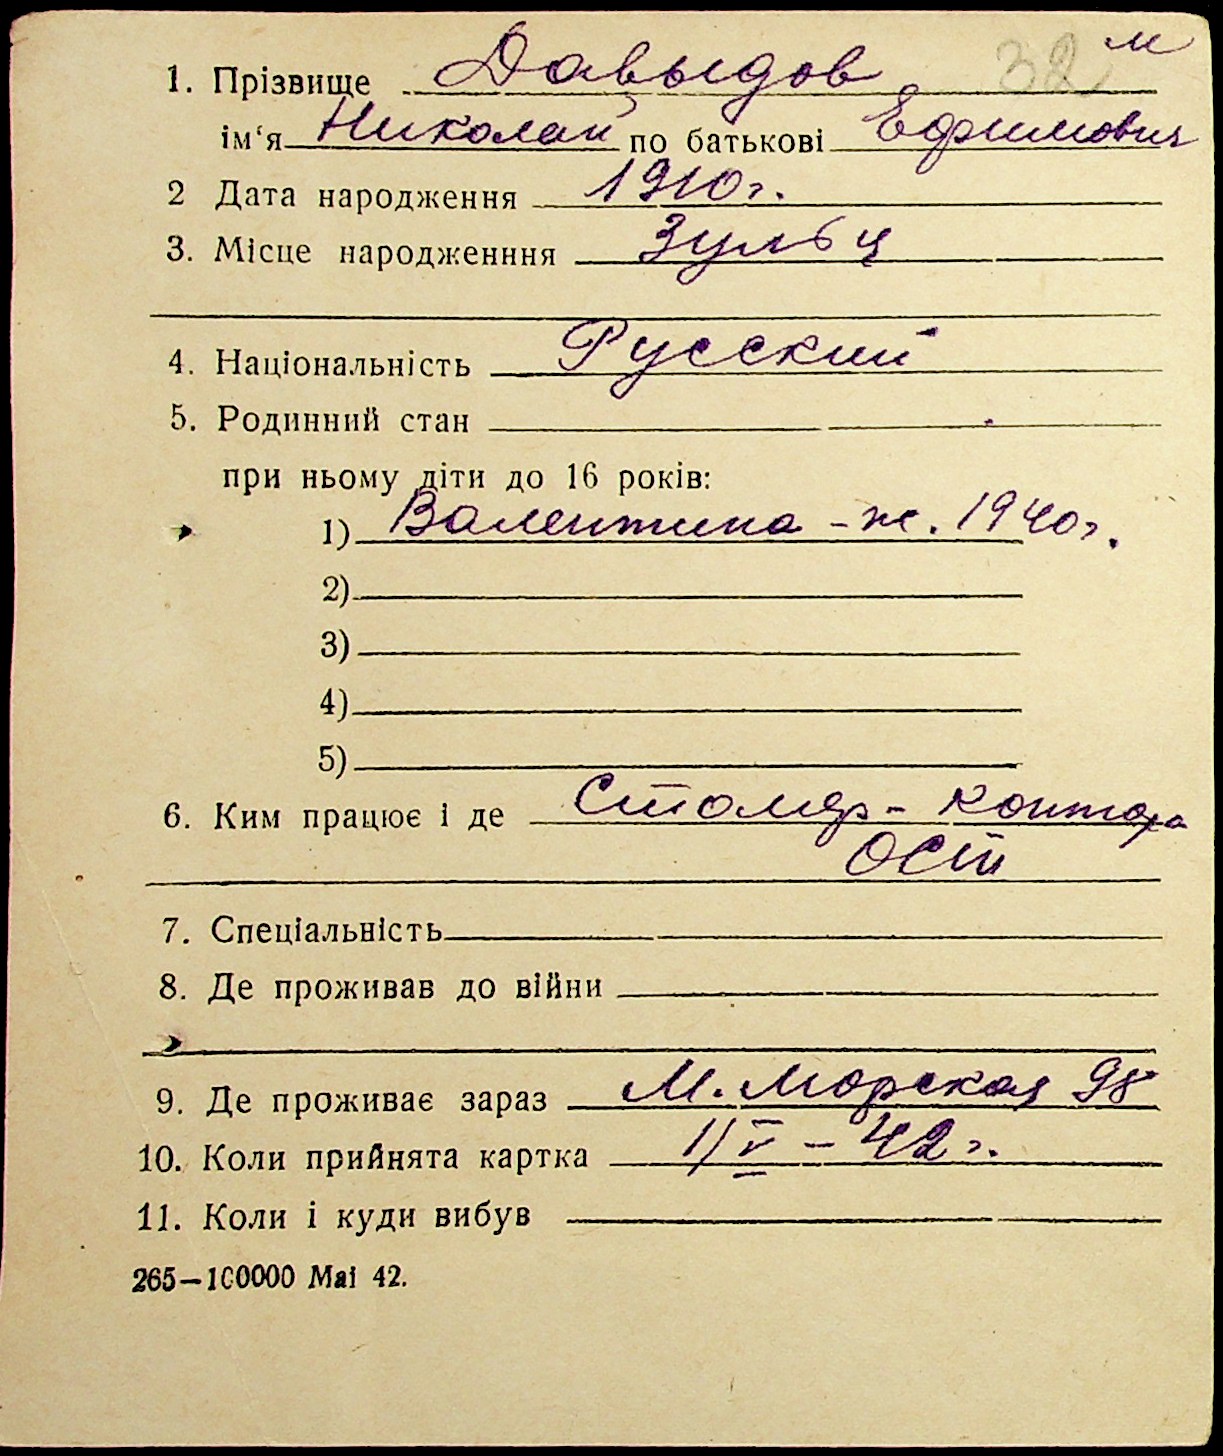 32 м
1. Прізвище Давыдов
ім‘я Николай по батькові Ефимович
2 Дата народження 1910 г.
3. Місце народженння Зульц
4. Національність Русский
5. Родинний стан
при ньому діти до 16 років:
1) Валентина - ж. 1940 г.
2)
3)
4)
5)
6. Ким працює і де Столяр - контора
ОСТ
7. Спеціальність
8. Де проживав до війни
9. Де проживає зараз М. Морская 98
10. Коли прийнята картка 1/V - 42 г.
11. Коли і куди вибув
265—100000 Mai 42.